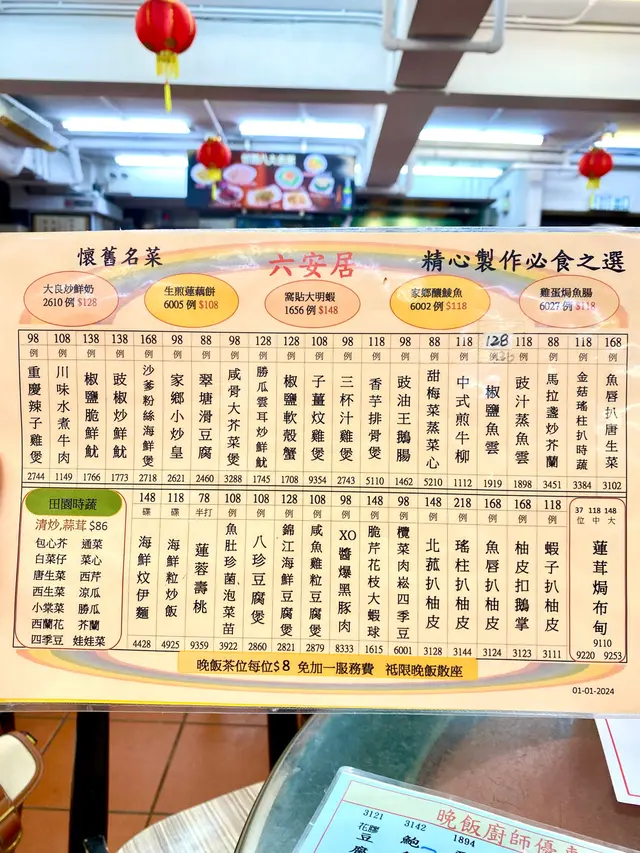 懷舊名菜
六安居
精心製作必食之選
大良炒鮮奶
2610 例 $128
生煎蓮藕餅
6005 例 $108
窩貼大明蝦
1656 例 $148
家鄉釀鯪魚
6002 例 $118
雞蛋焗魚腸
6027 例 $118
98 例 重慶辣子雞煲 2744
108 例 川味水煮牛肉 1149
138 例 椒鹽脆鮮魷 1766
138 例 豉椒炒鮮魷 1773
168 例 沙爹粉絲海鮮煲 2718
98 例 家鄉小炒皇 2621
88 例 翠塘滑豆腐 2460
98 例 咸骨大芥菜煲 3288
128 例 勝瓜雲耳炒鮮魷 1745
128 例 椒鹽軟殼蟹 1708
108 例 子薑炆雞煲 9354
98 例 三杯汁雞煲 2743
118 例 香芋排骨煲 5110
98 例 豉油王鵝腸 1462
88 例 甜梅菜蒸菜心 5210
118 例 中式煎牛柳 1112
128 例 椒鹽魚雲 1919
118 例 豉汁蒸魚雲 1898
88 例 馬拉盞炒芥蘭 3451
118 例 金菇瑤柱扒時蔬 3384
168 例 魚唇扒唐生菜 3102
田園時蔬
清炒,蒜茸 $86
包心芥 通菜
白菜仔 菜心
唐生菜 西芹
西生菜 涼瓜
小棠菜 勝瓜
西蘭花 芥蘭
四季豆 娃娃菜
148 碟 海鮮炆伊麵 4428
118 碟 海鮮粒炒飯 4925
78 半打 蓮蓉壽桃 9359
108 例 魚肚珍菌泡菜苗 3922
108 例 八珍豆腐煲 2860
128 例 錦江海鮮豆腐煲 2821
108 例 咸魚雞粒豆腐煲 2879
98 例 XO醬爆黑豚肉 8333
148 例 脆芹花枝大蝦球 1615
98 例 欖菜肉崧四季豆 6001
148 例 北菰扒柚皮 3128
218 例 瑤柱扒柚皮 3144
168 例 魚唇扒柚皮 3124
168 例 柚皮扣鵝掌 3123
118 例 蝦子扒柚皮 3111
37 118 148
位 中 大
蓮茸焗布甸
9110
9220 9253
晚飯茶位每位$8 免加一服務費 祗限晚飯散座
01-01-2024
晚飯廚師優
3121
花膠豆腐
3142
鮑
1894